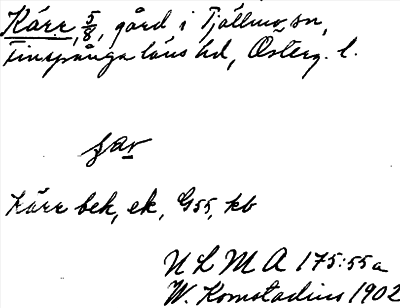 Kärr, 5/8, gård i Tjällmo sn,
Finspånga läns hd, Österg. l.
Kärr bek, ek, G55, kb
ULMA 175:55a
W. Komstadius 1902